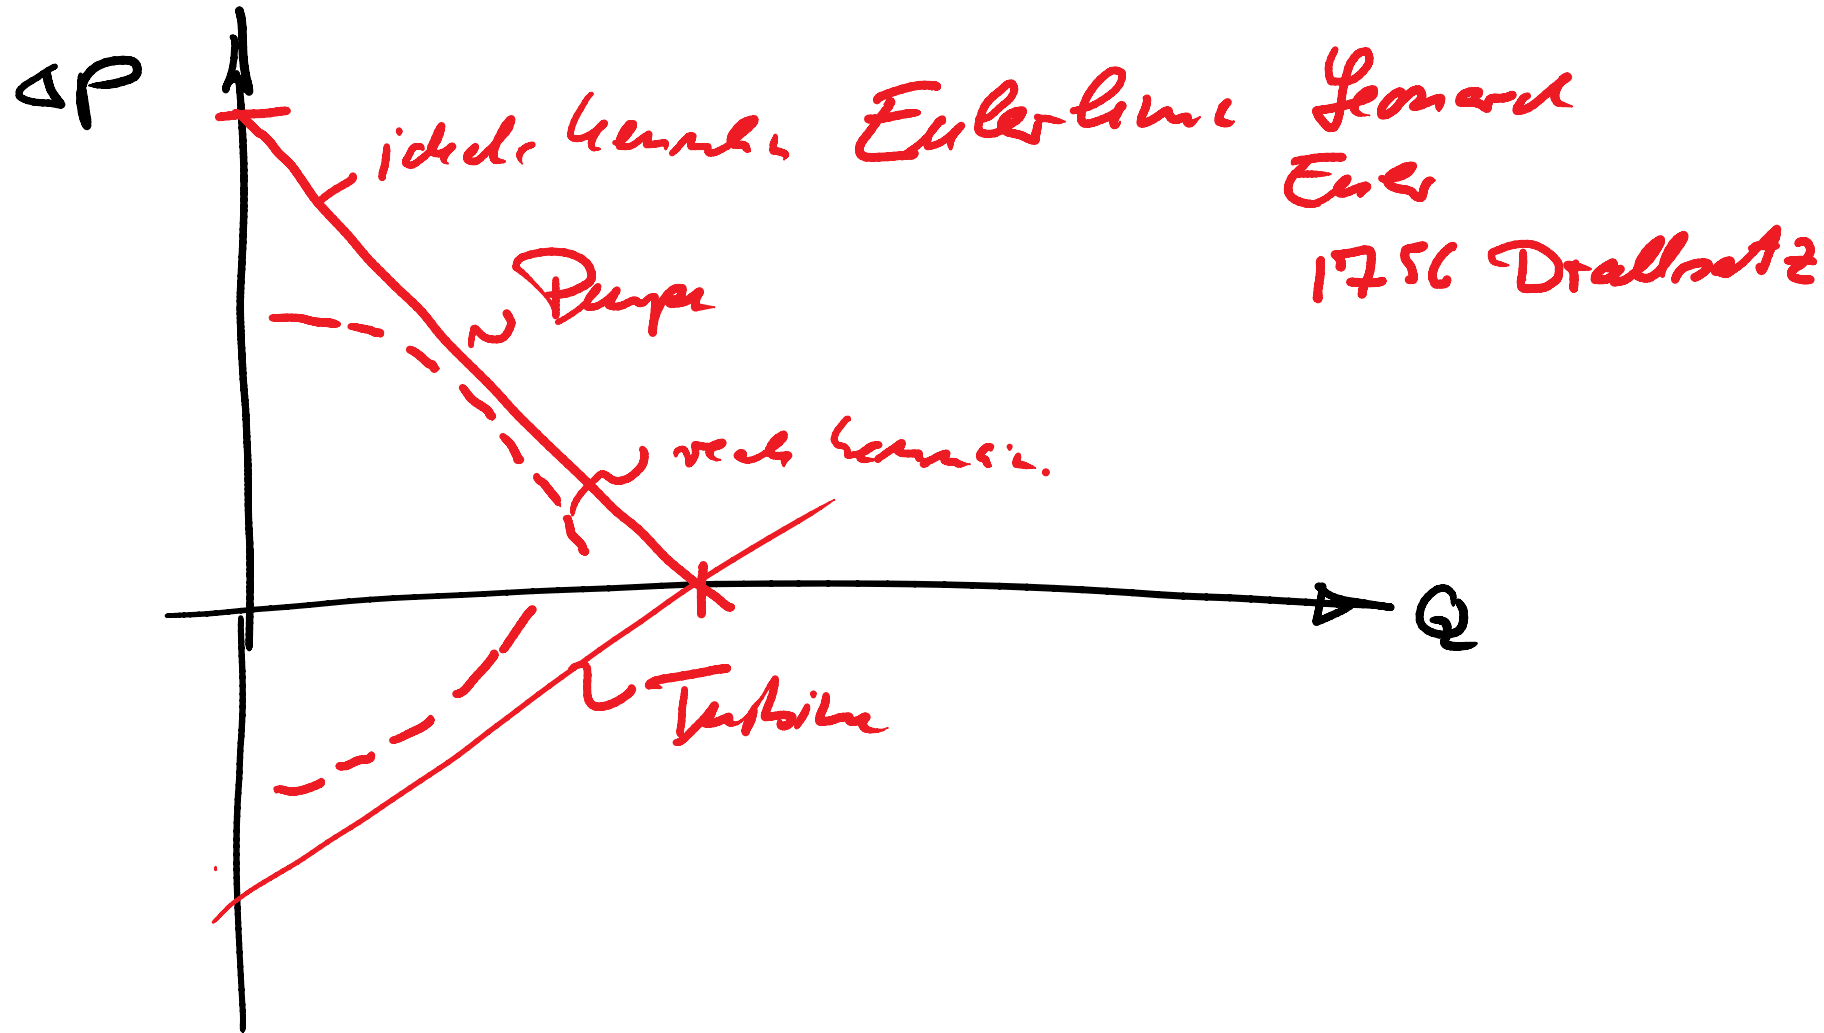 ΔP
ideale Kennlin. Eulerlinie Leonard
Euler
1756 Drallsatz
Pumpe
reale Kennlin.
Q
Turbine